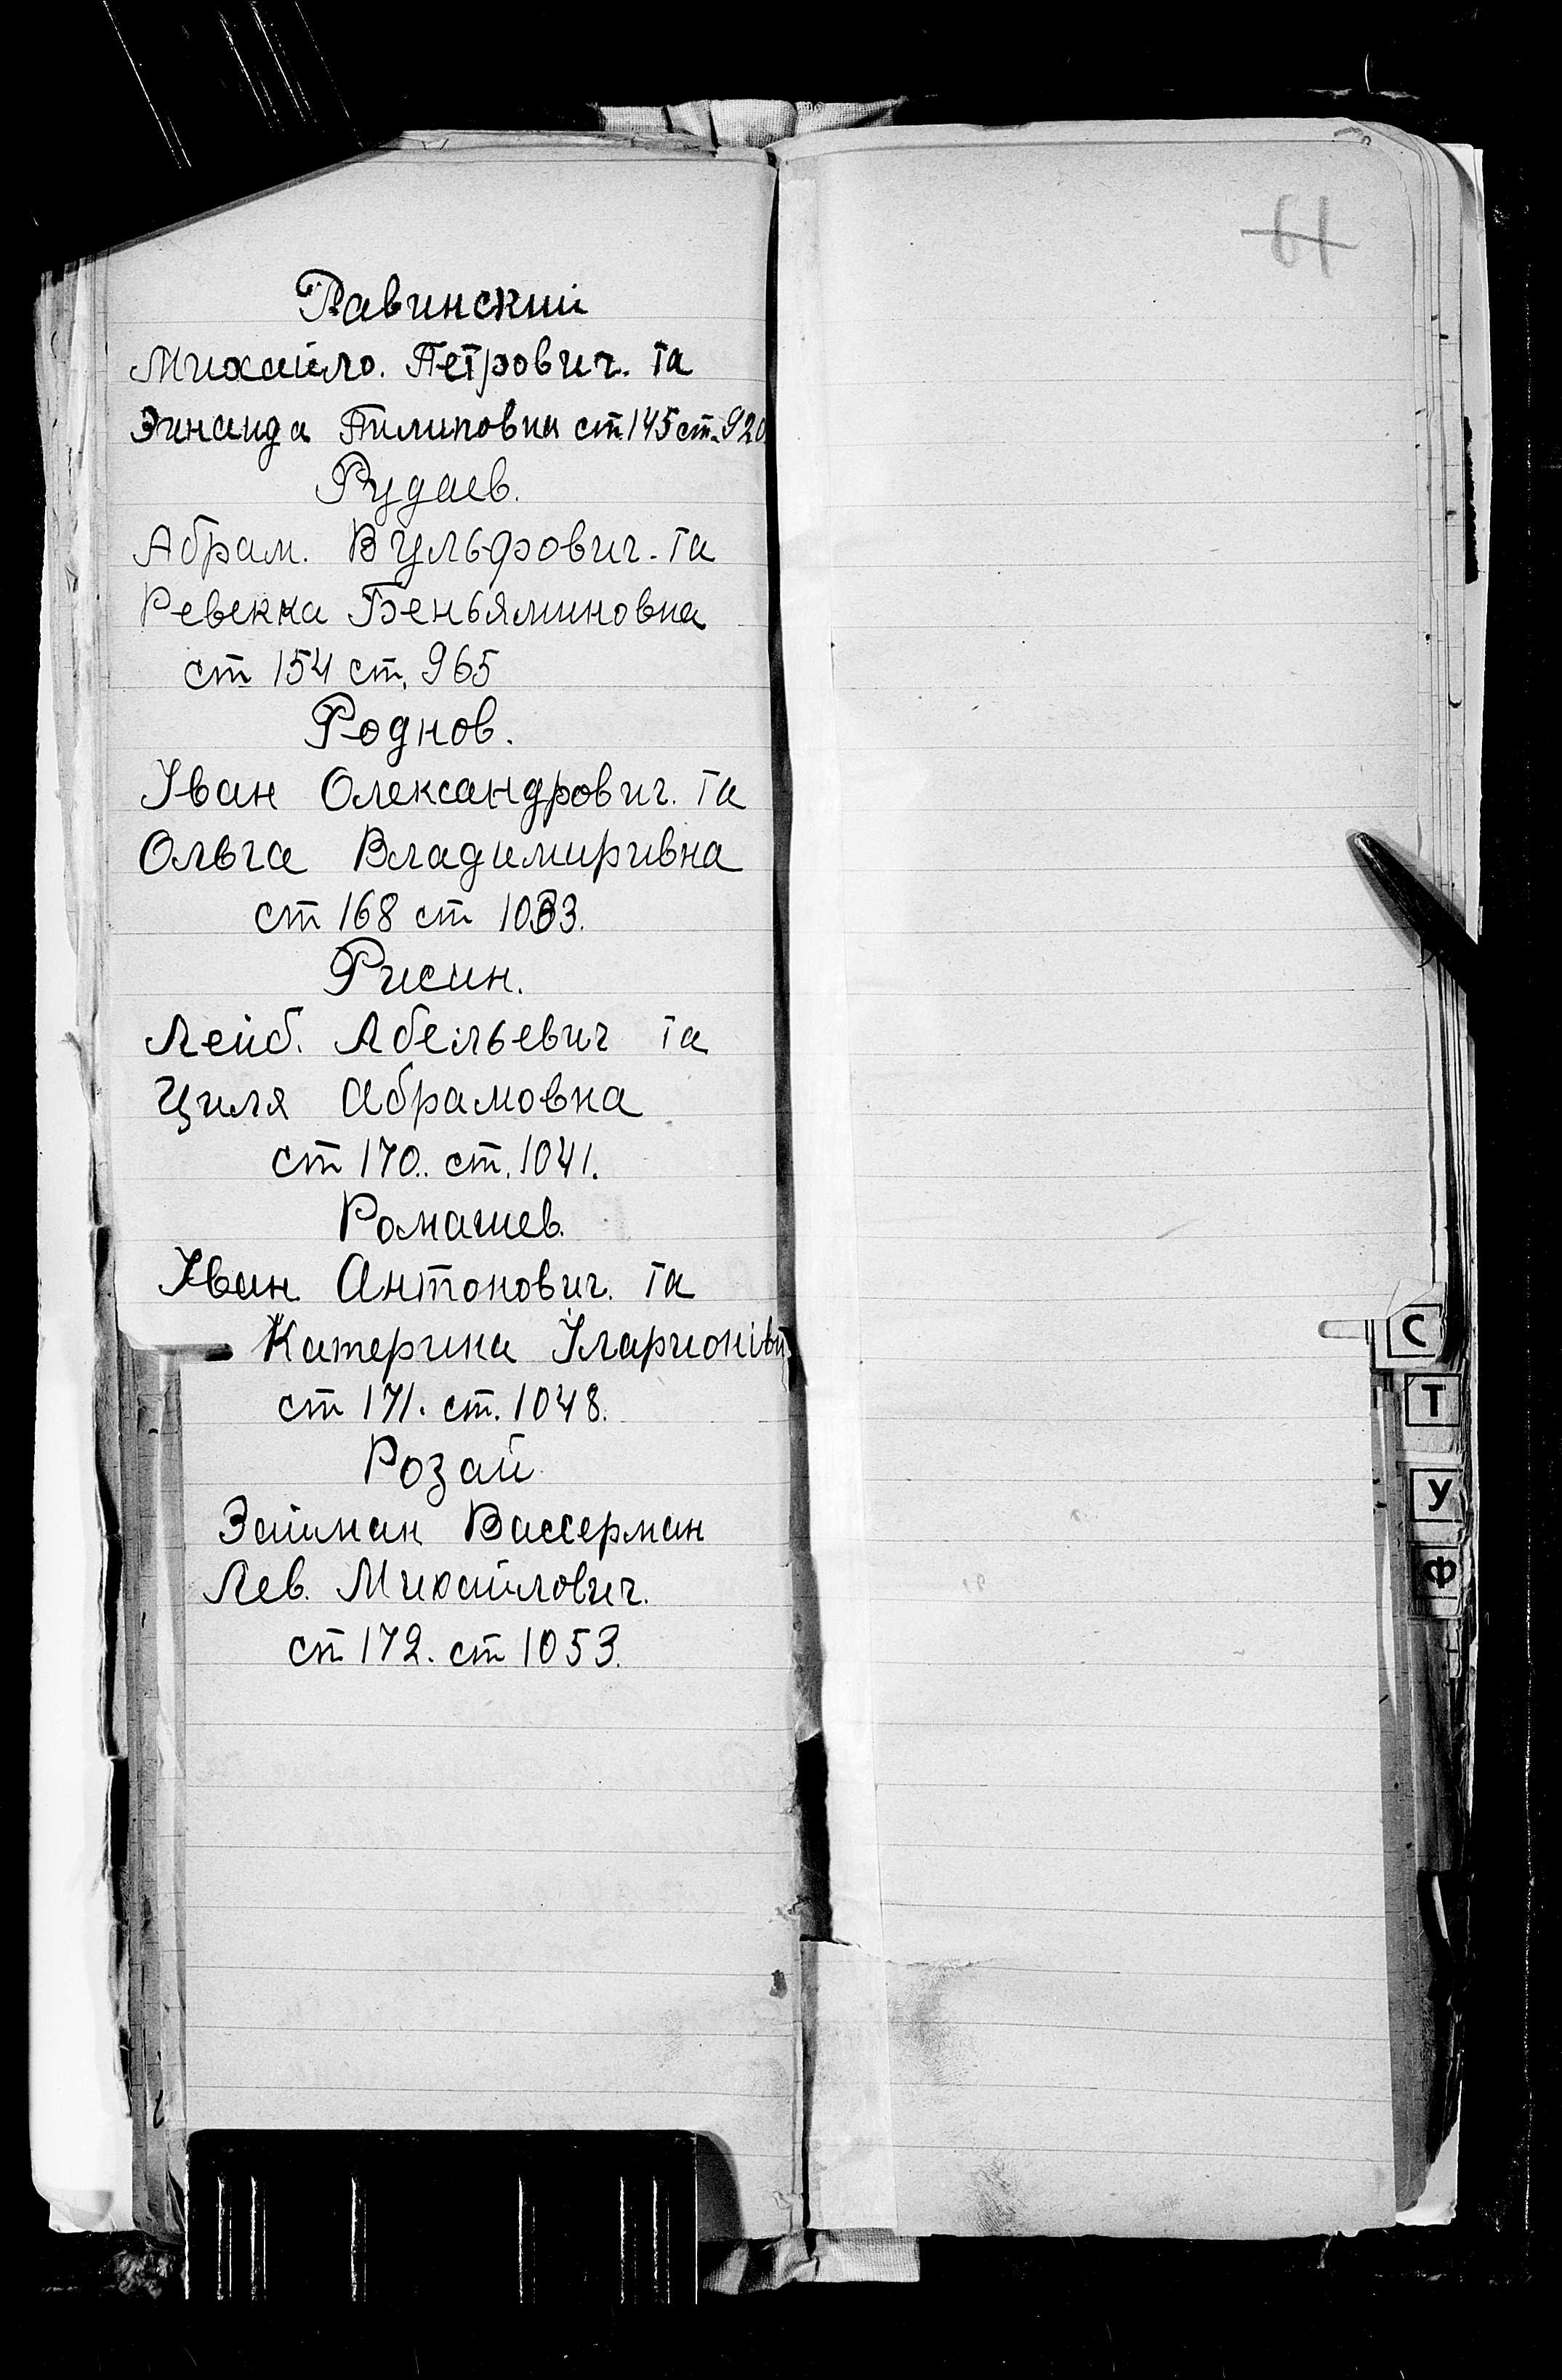 Равинский
Михайло. Петрович. та
Зинаида Пилиповна ст. 145 ст. 920
Рудаев.
Абрам. Вульфович. та
Ревекка Беньяминовна
ст 154 ст. 965
Роднов.
Іван Олександрович. та
Ольга Владимиривна
ст 168 ст 1033.
Рисин.
Лейб. Абельевич та
Циля Абрамовна
ст 170.. ст. 1041.
Ромашев.
Іван Антонович. та
Катерина Іларионівн
ст 171. ст. 1048.
Розай
Займан Вассерман
Лев. Михайлович.
ст 172. ст 1053.
61
С
Т
У
Ф